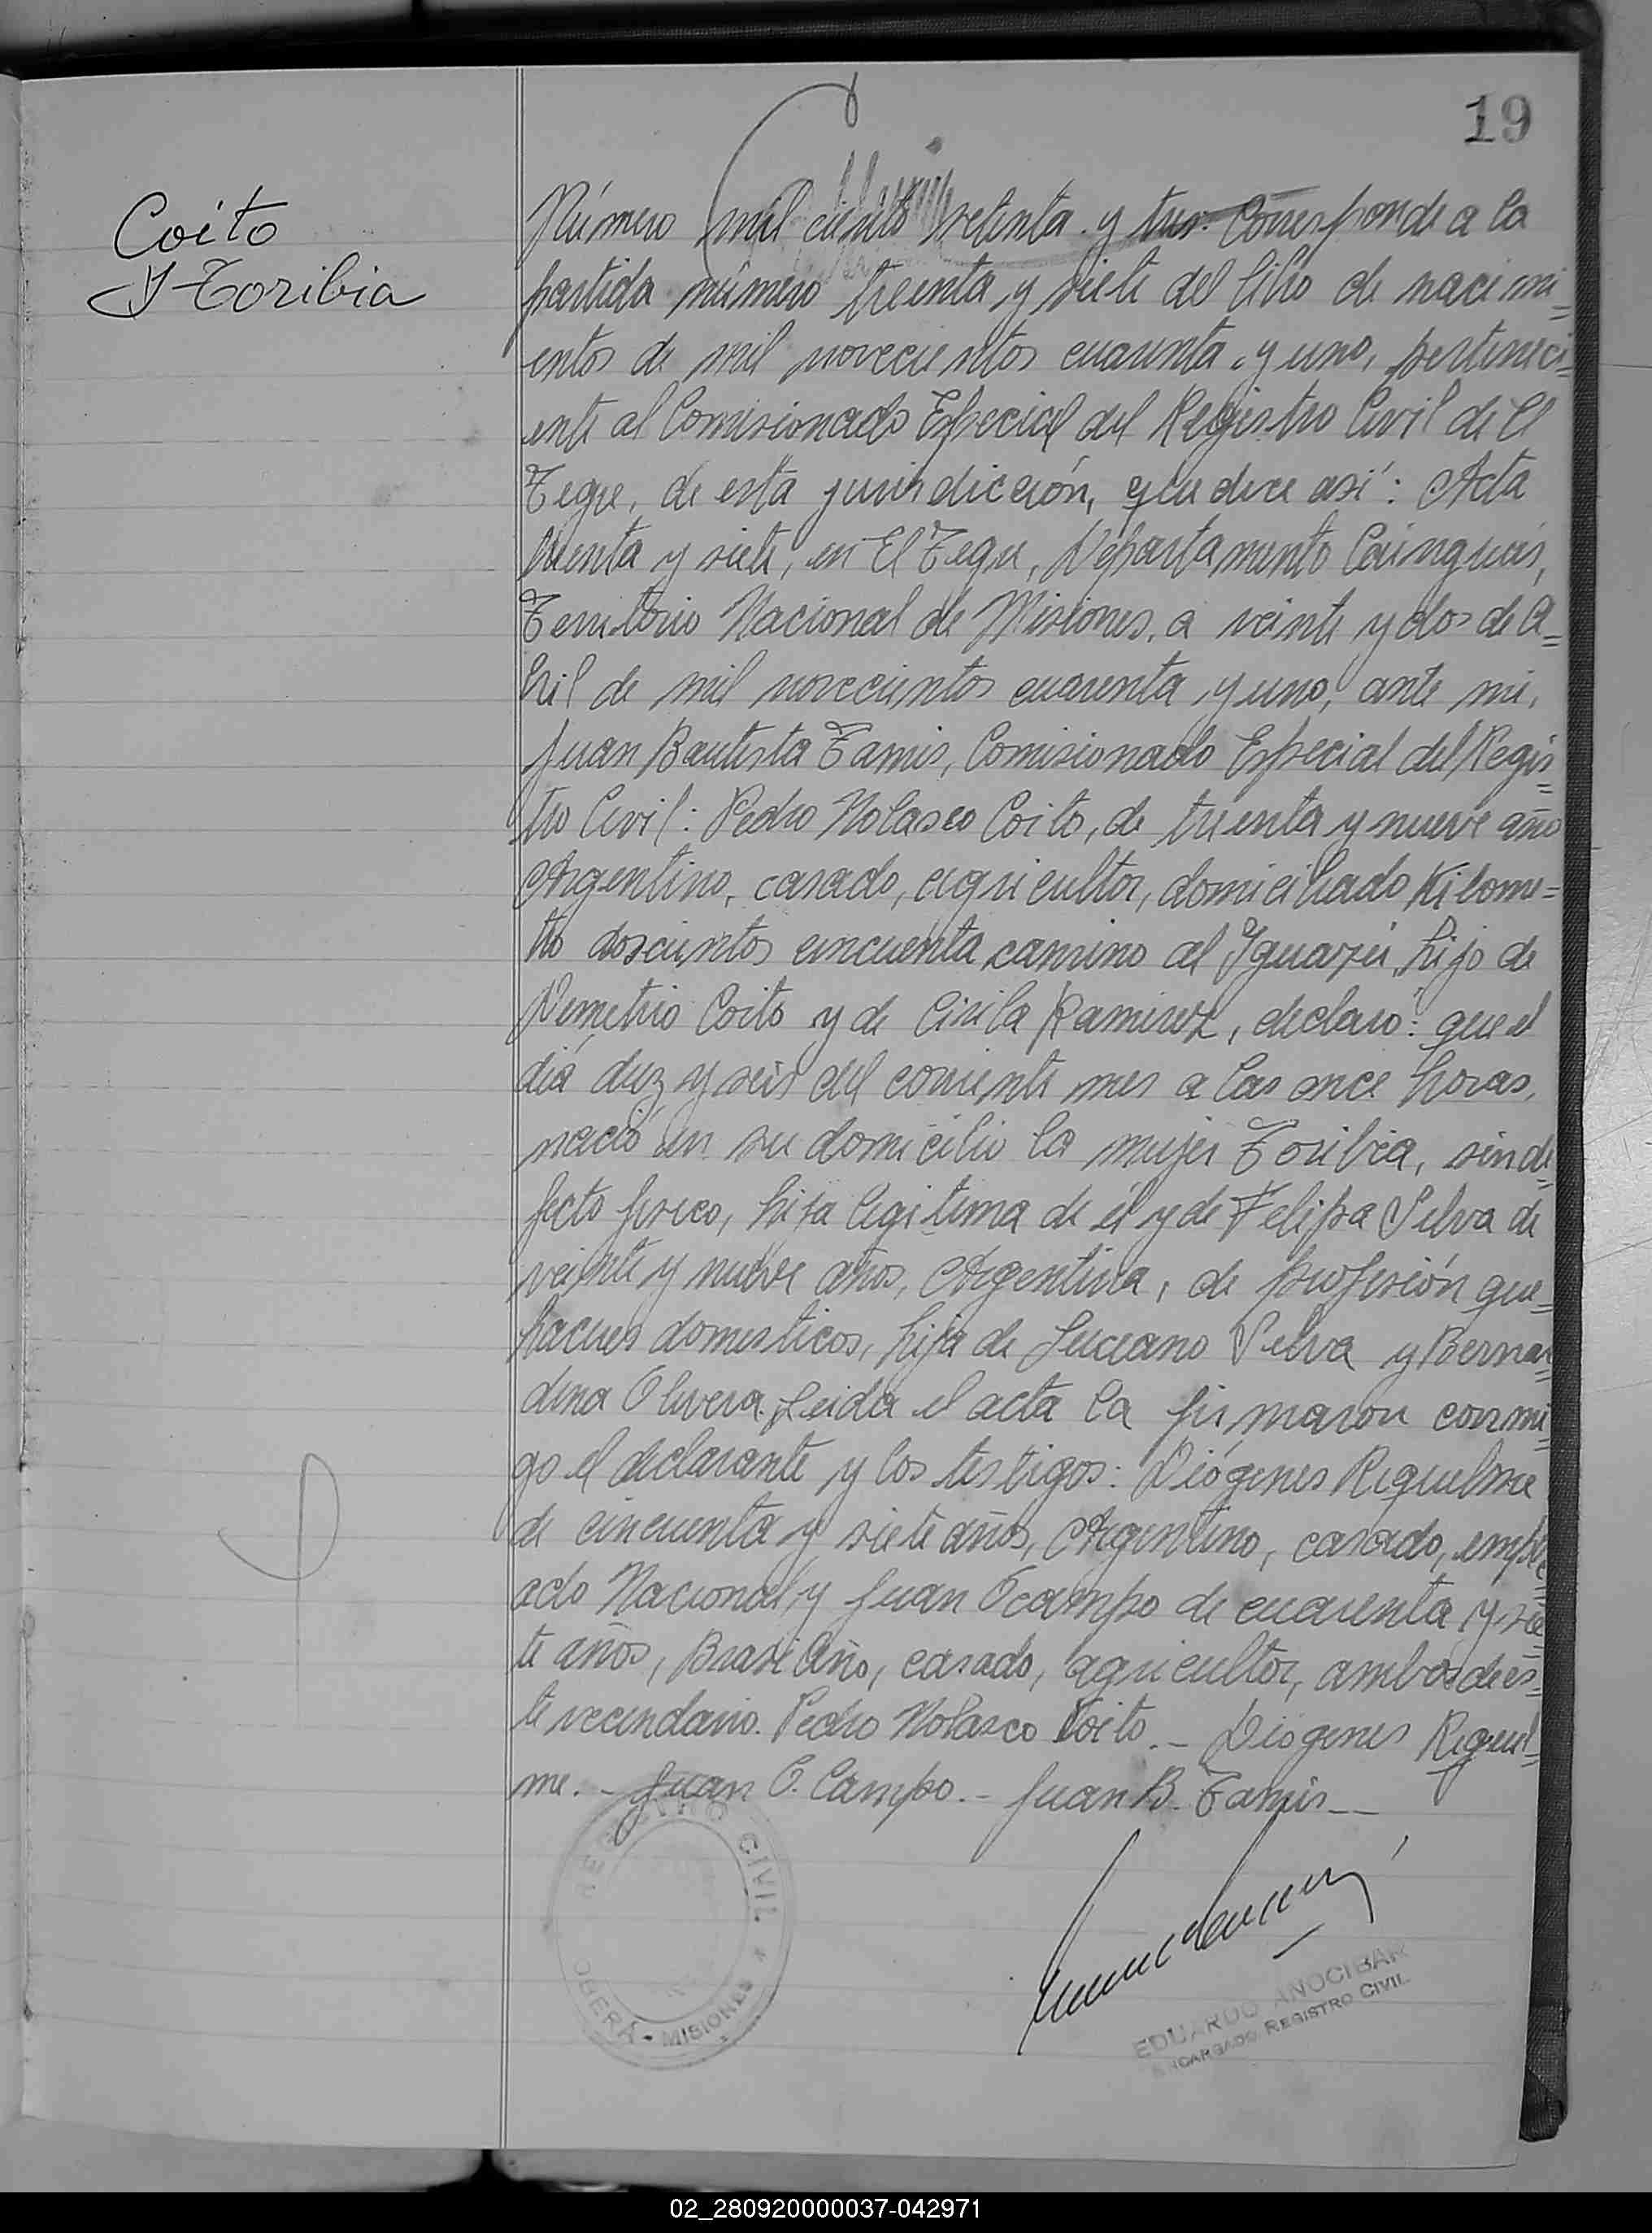 19
Coito
Toribia
Número mil ciento setenta y tres. Corresponde a la
partida número treinta y siete del libro de nacimi=
entos de mil novecientos cuarenta y uno, perteneci=
ente al Comisionado Especial del Registro Civil de El
Tegue, de esta jurisdicción, que dice así: Acta
treinta y siete, en El Tegue, Departamento Cainguás,
Territorio Nacional de Misiones, a veinte y dos de A=
bril de mil novecientos cuarenta y uno, ante mi,
Juan Bautista Tamis, Comisionado Especial del Regis=
tro Civil: Pedro Nolasco Coito, de treinta y nueve año
Argentino, casado, agricultor, domiciliado Kilome=
tro doscientos cincuenta camino al Iguazú, hijo de
Demetrio Coito y de Cisila Ramirez, declaro: que el
día diez y seis del corriente mes a las once horas,
nació en su domicilio la mujer Toribia, sin de=
fecto fisico, hija legitima de él y de Felipa Silva de
veinte y nueve años, Argentina, de profesión que=
haceres domesticos, hija de Luciano Silva y Bernar=
dina Olivera. Leida el acta la firmaron conmi=
go el declarante y los testigos: Diógenes Riquelme
de cincuenta y siete años, Argentino, casado, emple=
ado Nacional, y Juan Ocampo de cuarenta y sie=
te años, Brasileño, casado, agricultor, ambos de es=
te vecindario. Pedro Nolasco Coito.- Diogenes Riquel=
me.- Juan O. Campo.- Juan B. Tamis--
REGISTRO CIVIL
OBERÁ - MISIONES
EDUARDO ANOCIBAR
ENCARGADO REGISTRO CIVIL
02_280920000037-042971